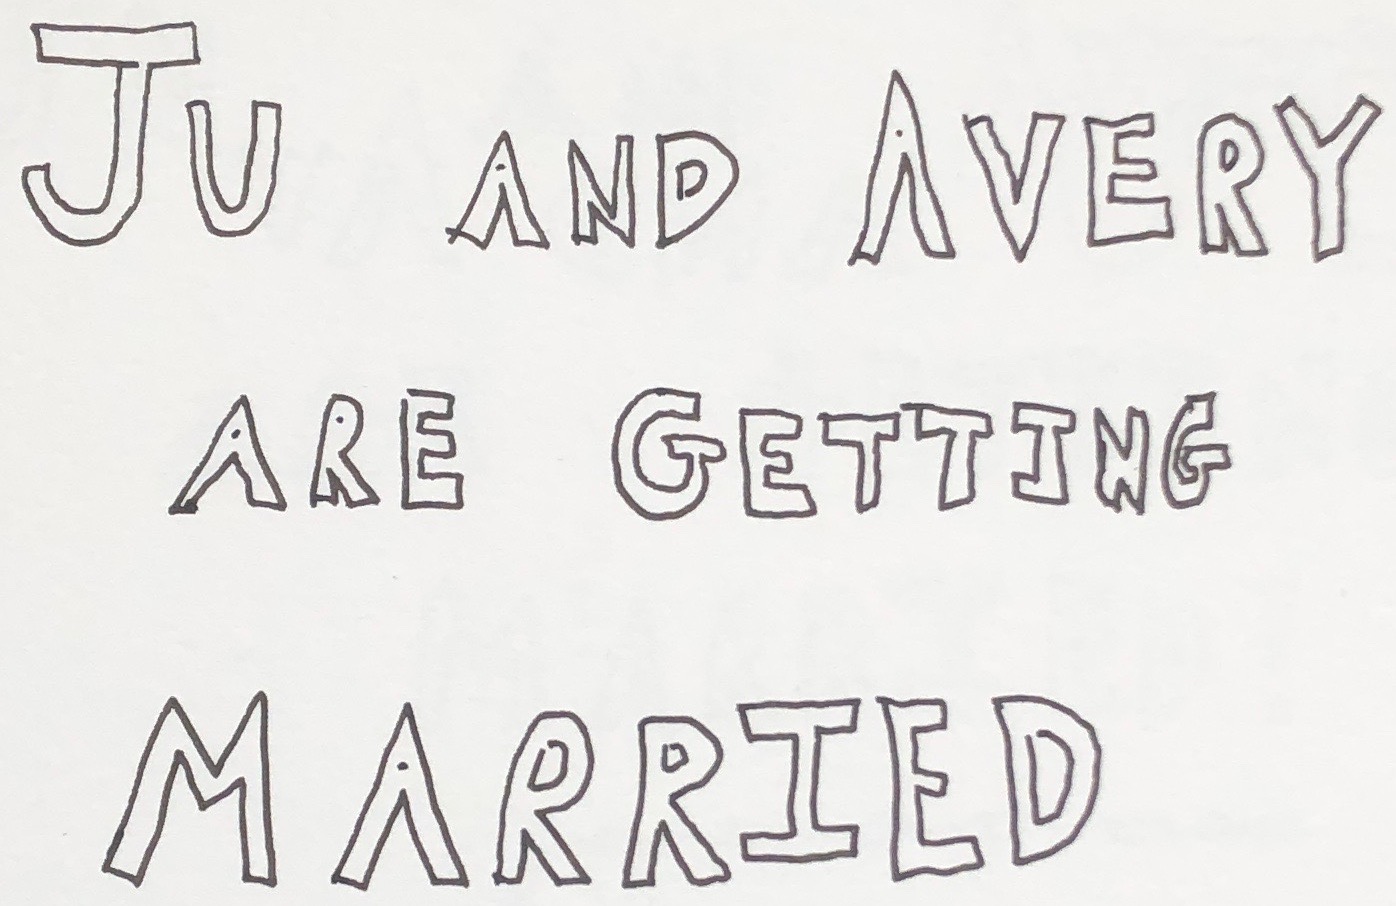 JU AND AVERY
ARE GETTING
MARRIED